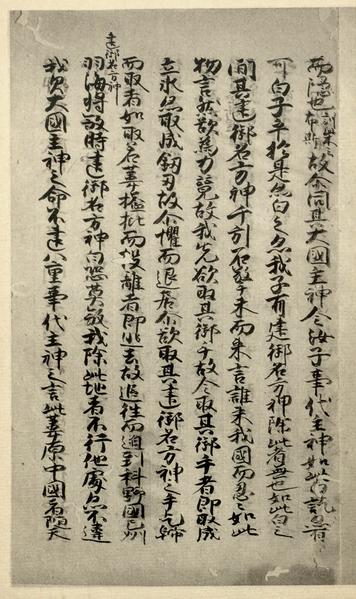 而隱也訓柴云布斯故尒問其大國主神今汝子事代主神如此白訖
可白子乎於是亦白之亦我子有建御名方神除此者無也如此白之
間其建御名方神千引石擎手末而来言誰来我國而忍々如此
物言然欲爲力競故我先欲取其御手故令取其御手者即取成
立氷亦取成釼刃故尒懼而退居尒欲取其建御名方神之手乞歸
而取者如取若葦搤批而投離者即逃去故追往而迫到科野國之州
建御名方神
羽海將殺時建御名方神白恐莫殺我除此地者不行他處亦不違
我父大國主神之命不違八重事代主神之言此葦原中國者隨天